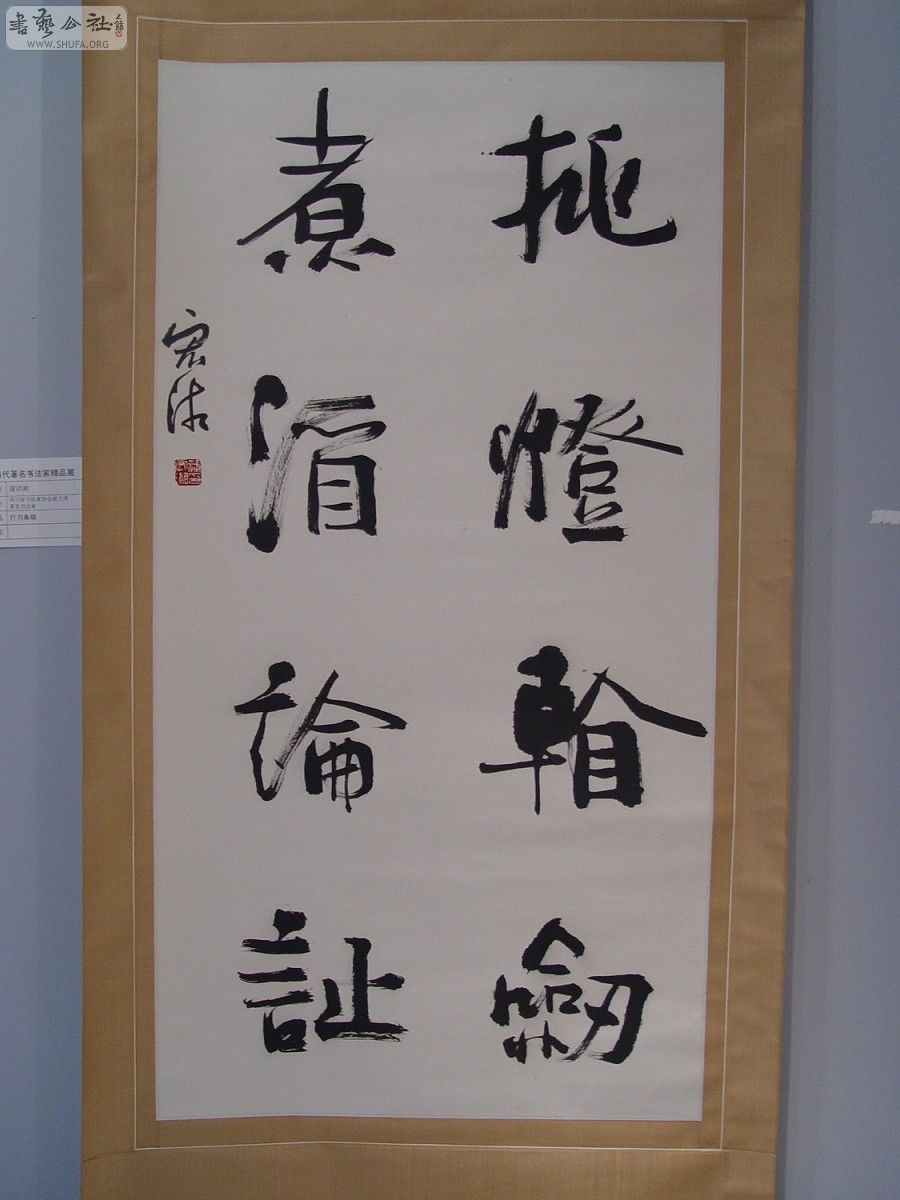 書藝公社
WWW.SHUFA.ORG
挑燈看劍
煮酒論詩
宏湘
代著名书法家精品展
著名书法家
行书条幅